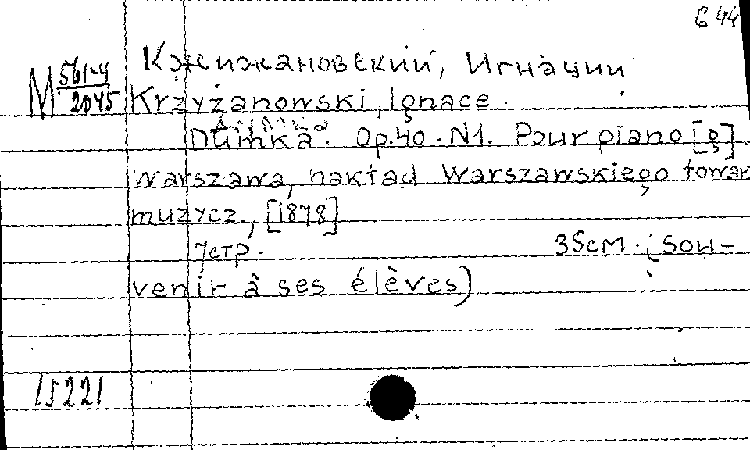 644
М 561-4/2045
Кжижановский, Игнации
Krzyżanowski, Ignace.
Dumka. Op.40. N1. Pour piano [g]
Warszawa, nakład Warszawskiego towar
muzycz., [1878]
7стр. 35см. (Sou-
venir à ses élèves)
15221